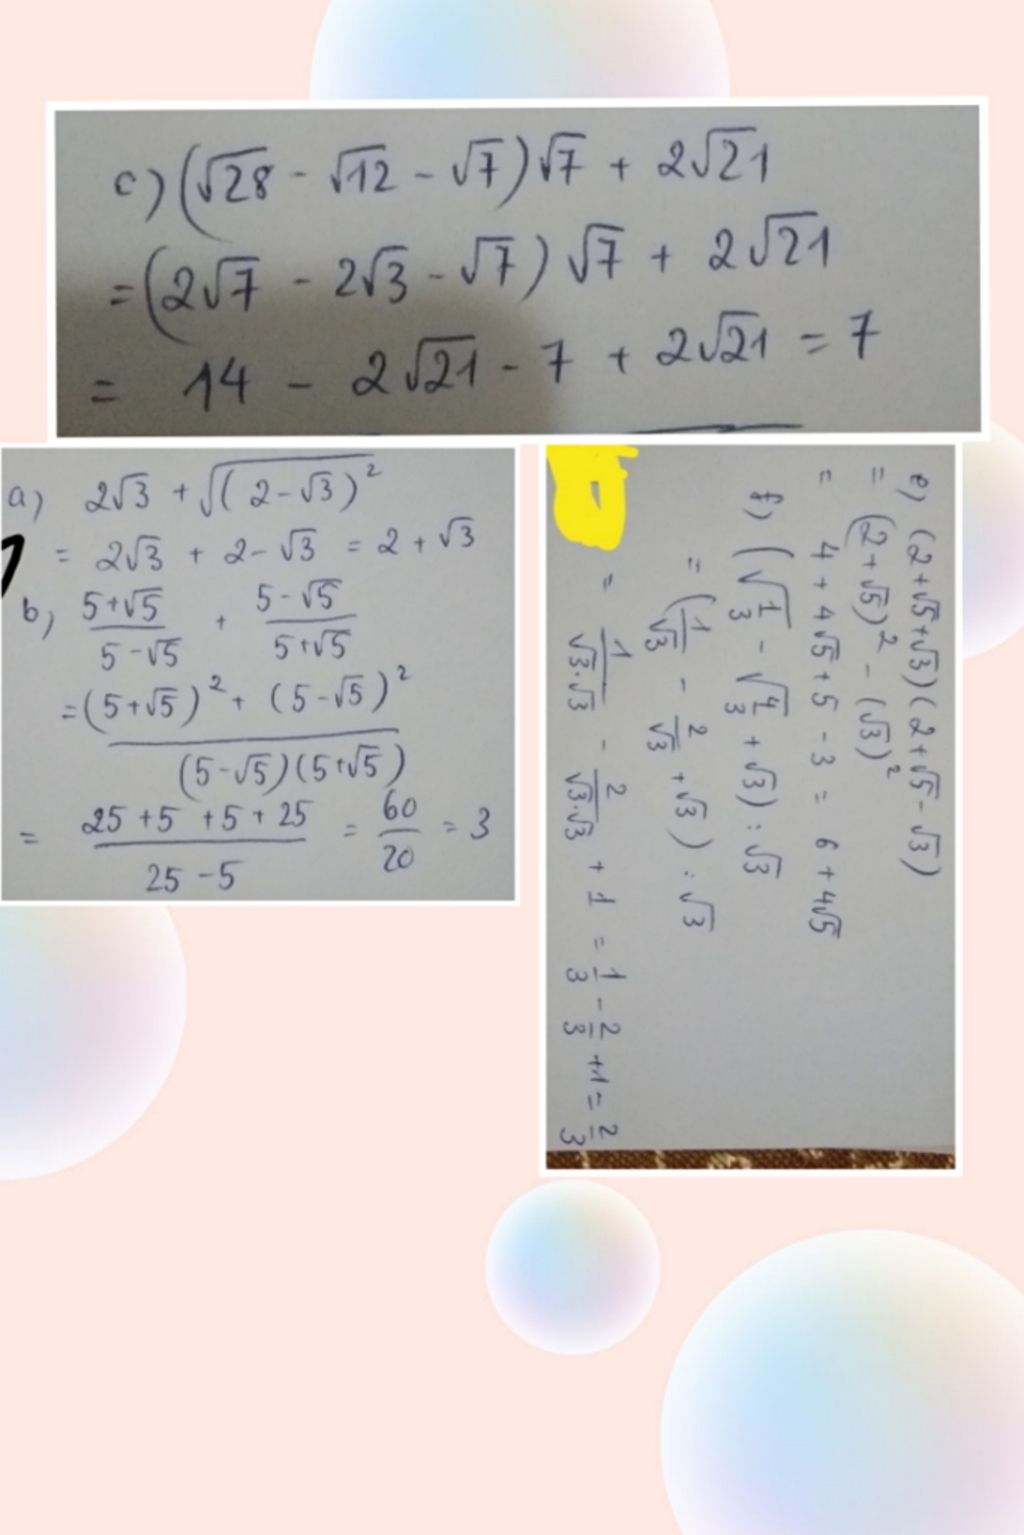 c) (√28 - √12 - √7)√7 + 2√21
= (2√7 - 2√3 - √7) √7 + 2√21
= 14 - 2√21 - 7 + 2√21 = 7
a) 2√3 + √((2-√3)²)
= 2√3 + 2-√3 = 2 + √3
b) (5+√5)/(5-√5) + (5-√5)/(5+√5)
= ((5+√5)² + (5-√5)²)/((5-√5)(5+√5))
= (25 +5 +5 + 25)/(25 -5) = 60/20 = 3
e) (2+√5+√3)(2+√5-√3)
= (2+√5)² - (√3)²
= 4 + 4√5 + 5 - 3 = 6 + 4√5
f) (√(1/3) - √(4/3) + √3) : √3
= (1/√3 - 2/√3 + √3) : √3
= 1/(√3.√3) - 2/(√3.√3) + 1 = 1/3 - 2/3 +1 = 2/3